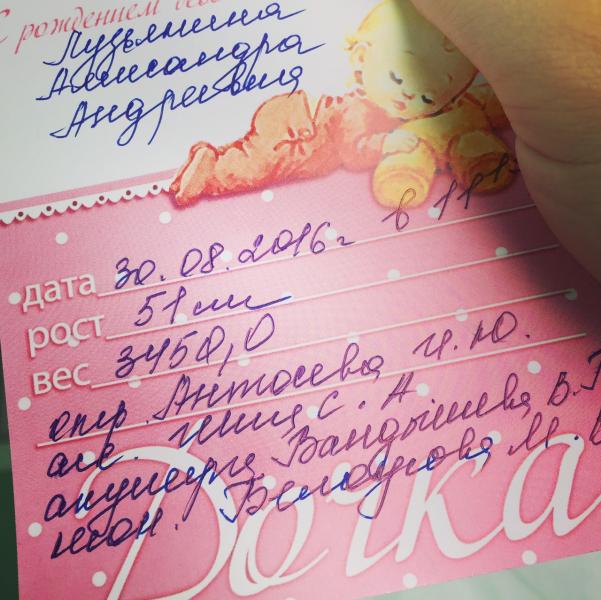 С рождением
Лузянина
Александра
Андреевна
дата 30.08.2016г в
рост 51 см
вес 3450,0
опер. Антосева И.Ю.
акушерка Вандышева В.
неон. Белоусова М.
Дочка